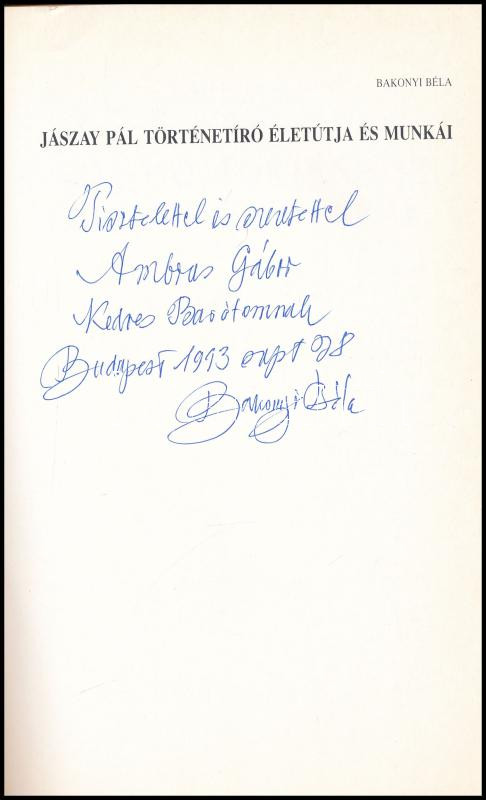 BAKONYI BÉLA
JÁSZAY PÁL TÖRTÉNETÍRÓ ÉLETÚTJA ÉS MUNKÁI
Tisztelettel és szeretettel
Ambrus Gábor
Kedves Barátomnak
Budapest 1993 szept 28
Bakonyi Béla